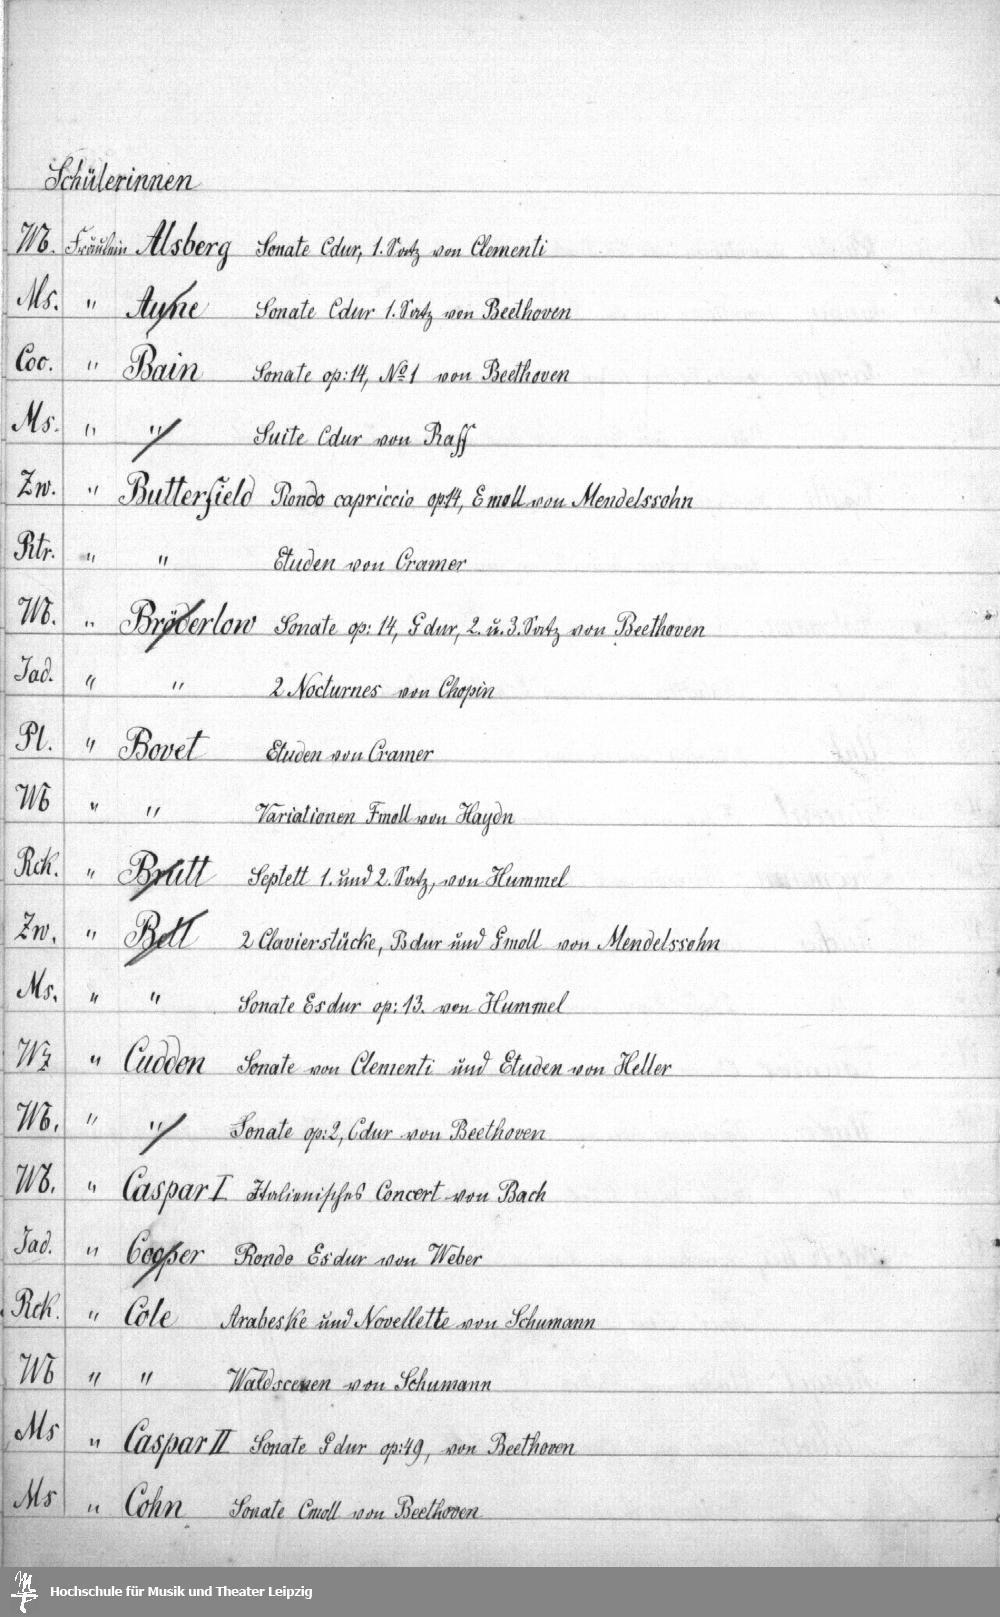 Schülerinnen
Wb. Fräulein Alsberg Sonate Cdur, 1. Satz von Clementi
Ms. " Ayne Sonate Cdur 1. Satz von Beethoven
Coc. " Bain Sonate op: 14, No 1 von Beethoven
Ms. " " Suite Cdur von Raff
Zw. " Butterfield Rondo capriccio op14, E moll von Mendelssohn
Rtr. " " Etuden von Cramer
Wb. " Bröderlow Sonate op: 14, Gdur, 2. u. 3. Satz von Beethoven
Jad. " " 2 Nocturnes von Chopin
Pl. " Bovet Etuden von Cramer
Wb " " Variationen Fmoll von Haydn
Rck. " Brutt Septett 1. und 2. Satz, von Hummel
Zw. " Bell 2 Clavierstücke, Bdur und Gmoll von Mendelssohn
Ms. " " Sonate Esdur op: 13. von Hummel
Wz " Cudden Sonate von Clementi und Etuden von Heller
Wb. " " Sonate op: 2, Cdur von Beethoven
Wb. " Caspar I Italienisches Concert von Bach
Jad. " Cooper Rondo Esdur von Weber
Rck. " Cole Arabeske und Novellette von Schumann
Wb " " Waldscenen von Schumann
Ms " Caspar II Sonate Gdur op: 49, von Beethoven
Ms " Cohn Sonate Cmoll von Beethoven
Hochschule für Musik und Theater Leipzig